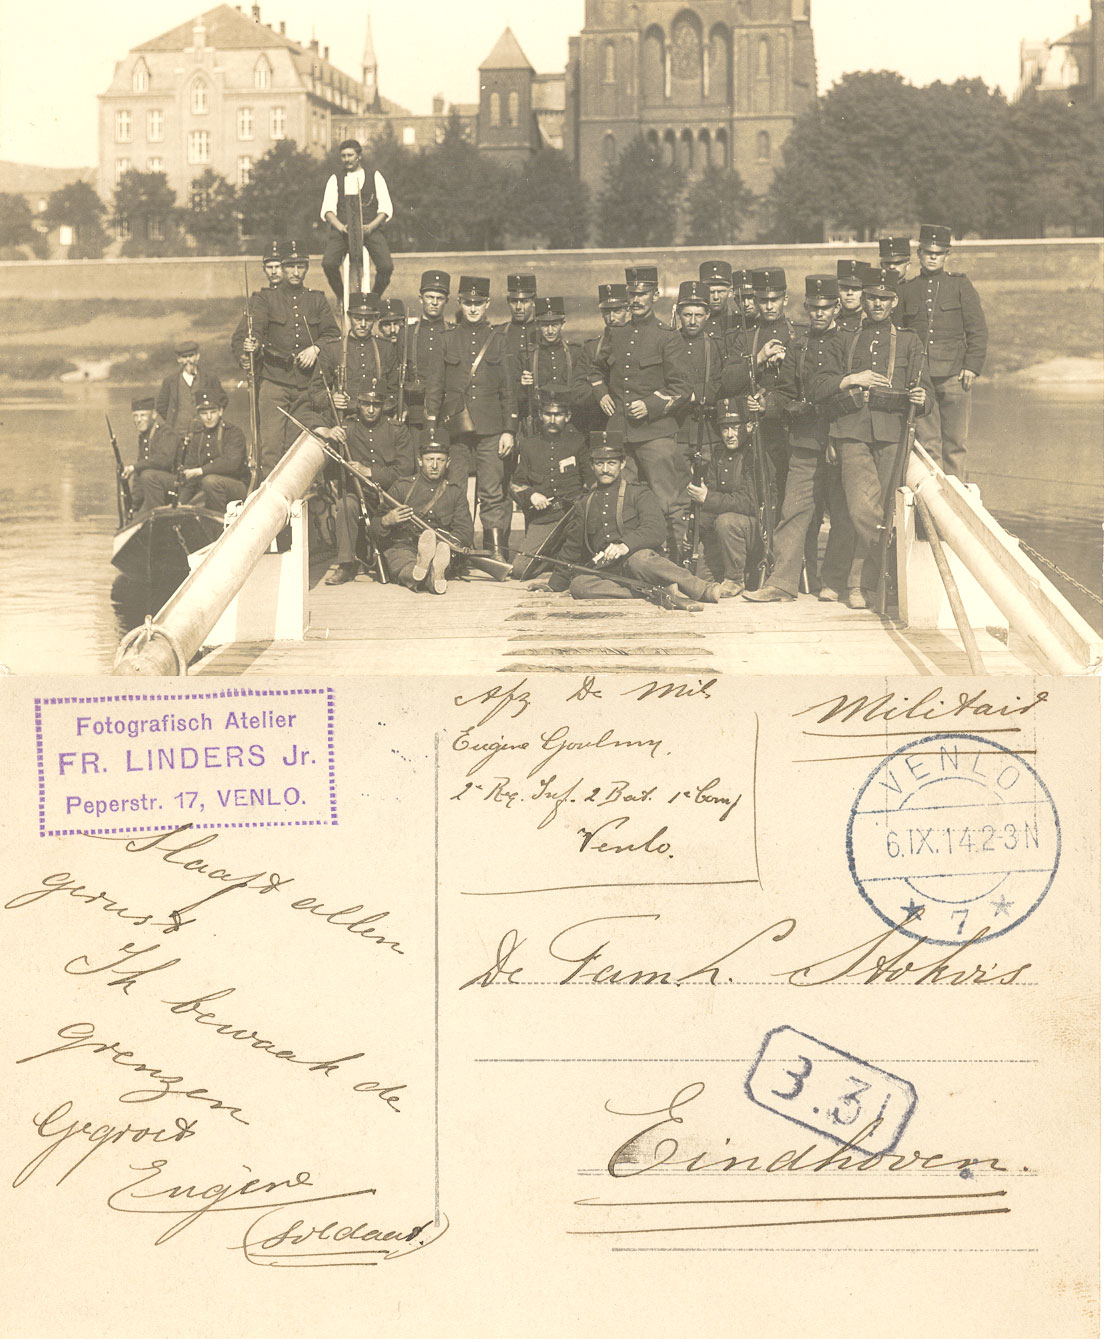 Fotografisch Atelier
FR. LINDERS Jr.
Peperstr. 17, VENLO.
Slaapt allen
gerust
Ik bewaak de
grenzen
Gegroet
Eugène
(Soldaat.)
Afz De Mil.
Eugène
2e Reg. Inf. 2 Bat. 1e Comp
Venlo.
Militair
VENLO
6.IX.14.2-3N
* 7 *
De Fam. L. Stokvis
3.3
Eindhoven.